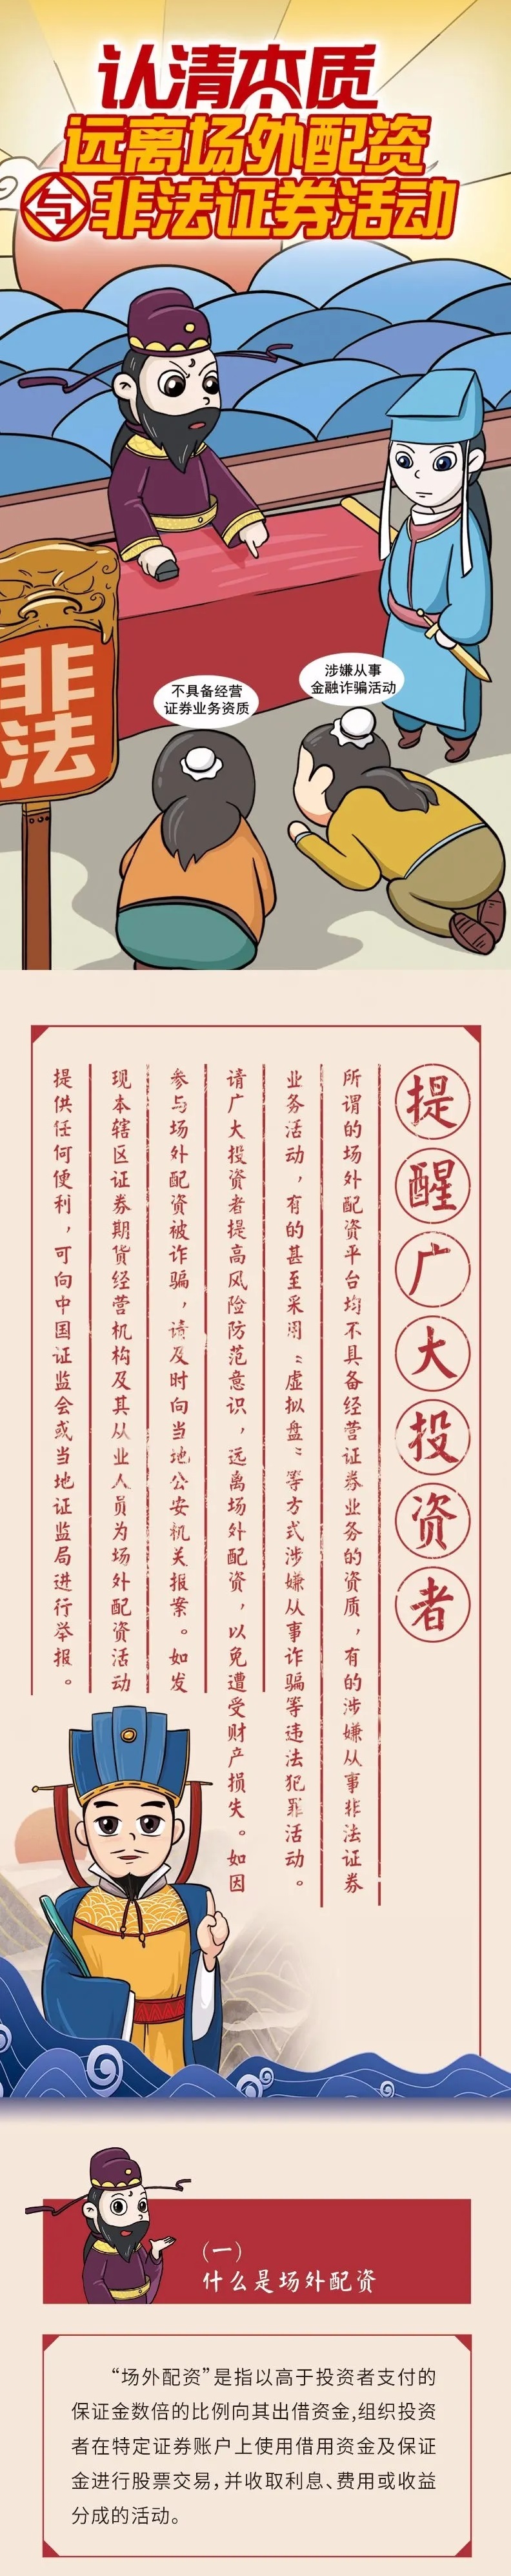 认清本质
远离场外配资
与非法证券活动
不具备经营
证券业务资质
涉嫌从事
金融诈骗活动
非法
提醒广大投资者
所谓的场外配资平台均不具备经营证券业务的资质，有的涉嫌从事非法证券
业务活动，有的甚至采用“虚拟盘”等方式涉嫌从事诈骗等违法犯罪活动。
请广大投资者提高风险防范意识，远离场外配资，以免遭受财产损失。如因
参与场外配资被诈骗，请及时向当地公安机关报案。如发
现本辖区证券期货经营机构及其从业人员为场外配资活动
提供任何便利，可向中国证监会或当地证监局进行举报。
（一）
什么是场外配资
“场外配资”是指以高于投资者支付的
保证金数倍的比例向其出借资金,组织投资
者在特定证券账户上使用借用资金及保证
金进行股票交易,并收取利息、费用或收益
分成的活动。